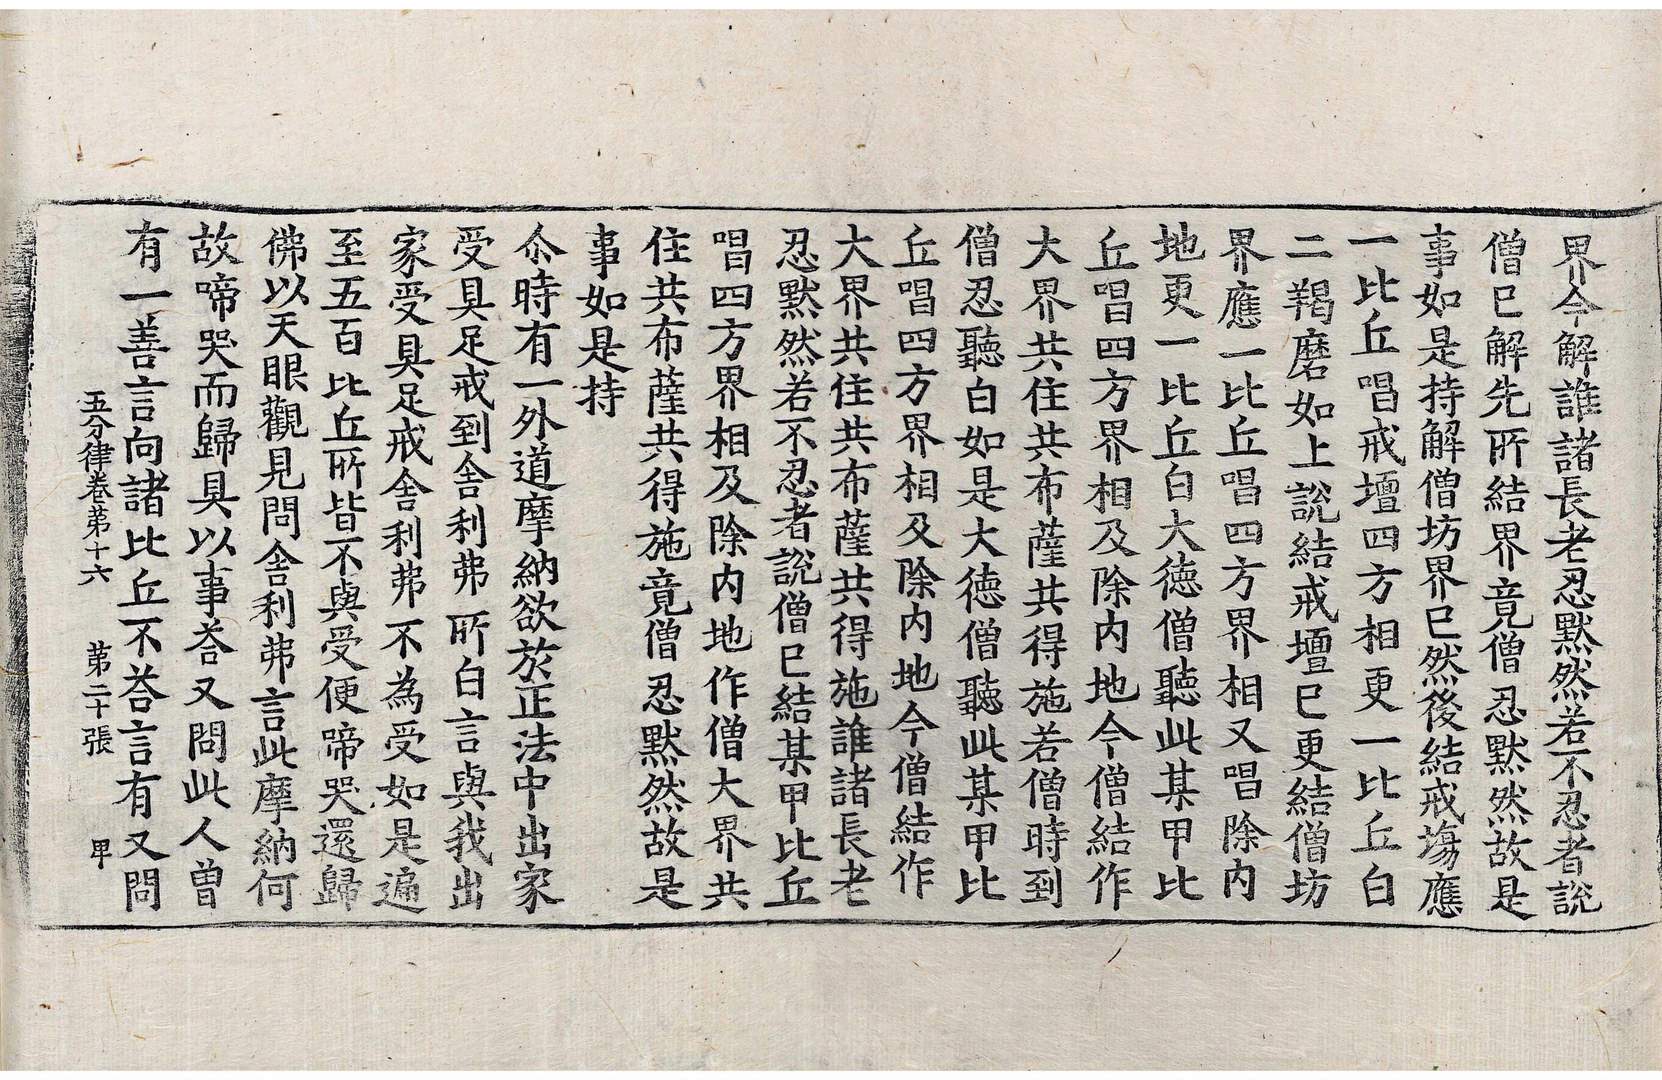 界今解誰諸長老忍默然若不忍者說
僧已解先所結界竟僧忍默然故是
事如是持解僧坊界已然後結戒場應
一比丘唱戒壇四方相更一比丘白
二羯磨如上說結戒壇已更結僧坊
界應一比丘唱四方界相又唱除内
地更一比丘白大德僧聽此某甲比
丘唱四方界相及除内地今僧結作
大界共住共布薩共得施若僧時到
僧忍聽白如是大德僧聽此某甲比
丘唱四方界相及除内地今僧結作
大界共住共布薩共得施誰諸長老
忍默然若不忍者說僧已結某甲比丘
唱四方界相及除内地作僧大界共
住共布薩共得施竟僧忍默然故是
事如是持
尒時有一外道摩納欲於正法中出家
受具足戒到舍利弗所白言與我出
家受具足戒舍利弗不為受如是遍
至五百比丘所皆不與受便啼哭還歸
佛以天眼觀見問舍利弗言此摩納何
故啼哭而歸具以事荅又問此人曾
有一善言向諸比丘不荅言有又問
五分律卷第十六 第二十張 甲